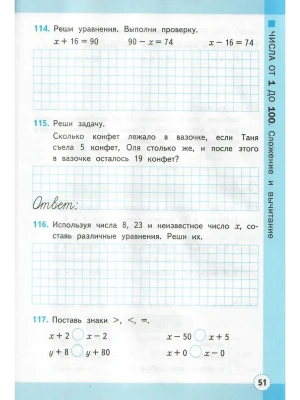 114. Реши уравнения. Выполни проверку.
x + 16 = 90 90 − x = 74 x − 16 = 74
115. Реши задачу.
Сколько конфет лежало в вазочке, если Таня
съела 5 конфет, Оля столько же, и после этого
в вазочке осталось 19 конфет?
Ответ:
116. Используя числа 8, 23 и неизвестное число x, со-
ставь различные уравнения. Реши их.
117. Поставь знаки >, <, =.
x + 2 ○ x − 2 x − 50 ○ x + 5
y + 8 ○ y + 80 x + 0 ○ x − 0
ЧИСЛА ОТ 1 ДО 100. Сложение и вычитание
51